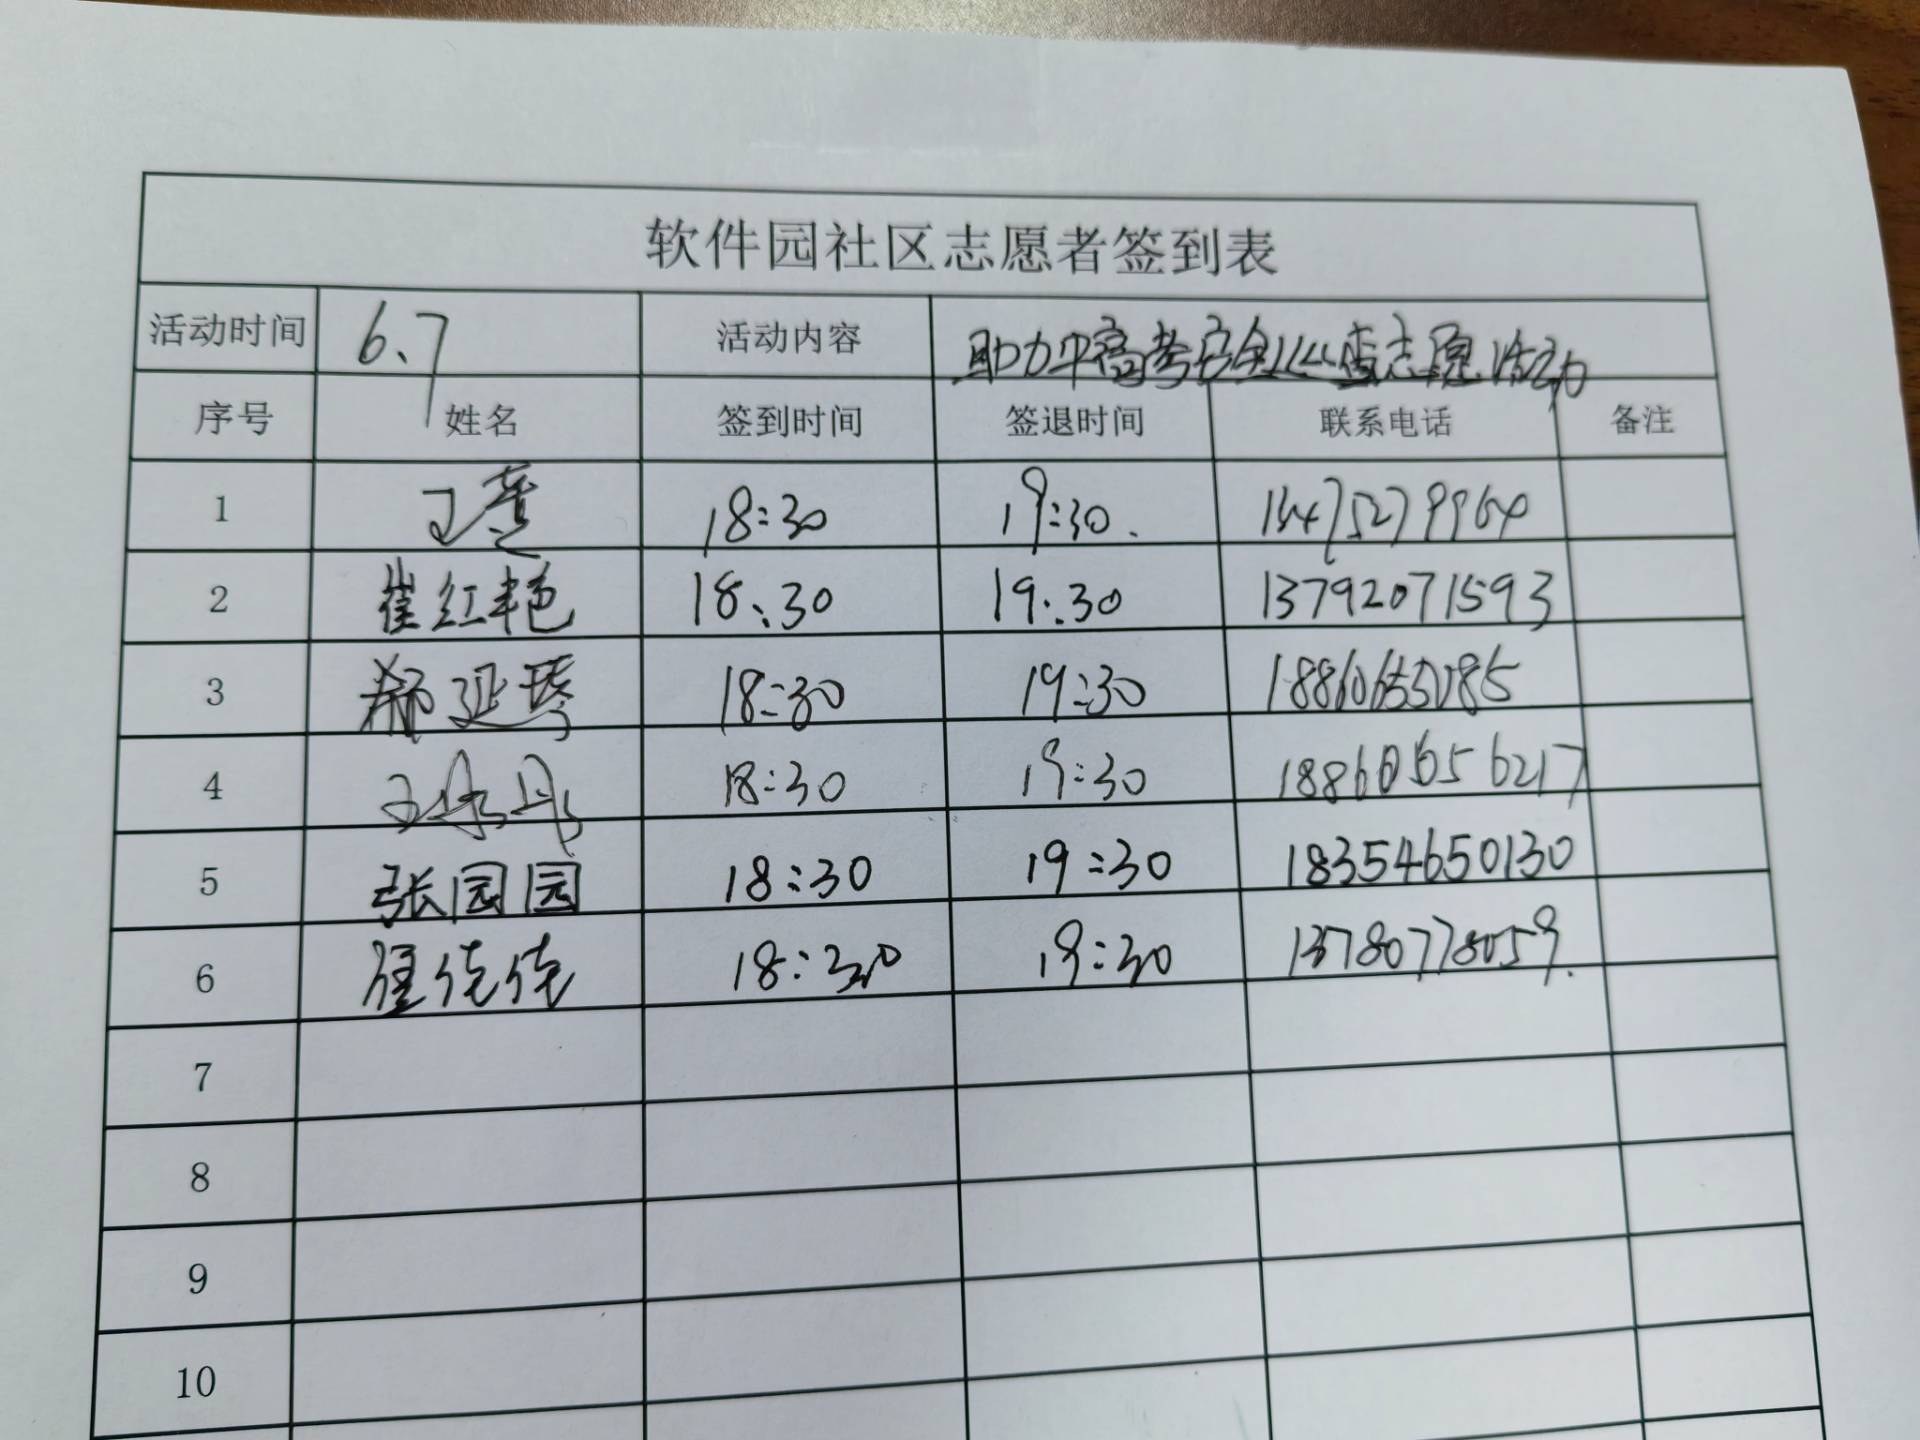 软件园社区志愿者签到表
活动时间 6.7 活动内容 助力中高考安全巡查志愿活动
序号 姓名 签到时间 签退时间 联系电话 备注
1 18:30 19:30.
2 崔红艳 18:30 19:30 13792071593
3 延琴 18:30 19:30
4 18:30 19:30 18860656217
5 张园园 18:30 19:30 18354650130
6 18:30 19:30 13780778059.
7
8
9
10